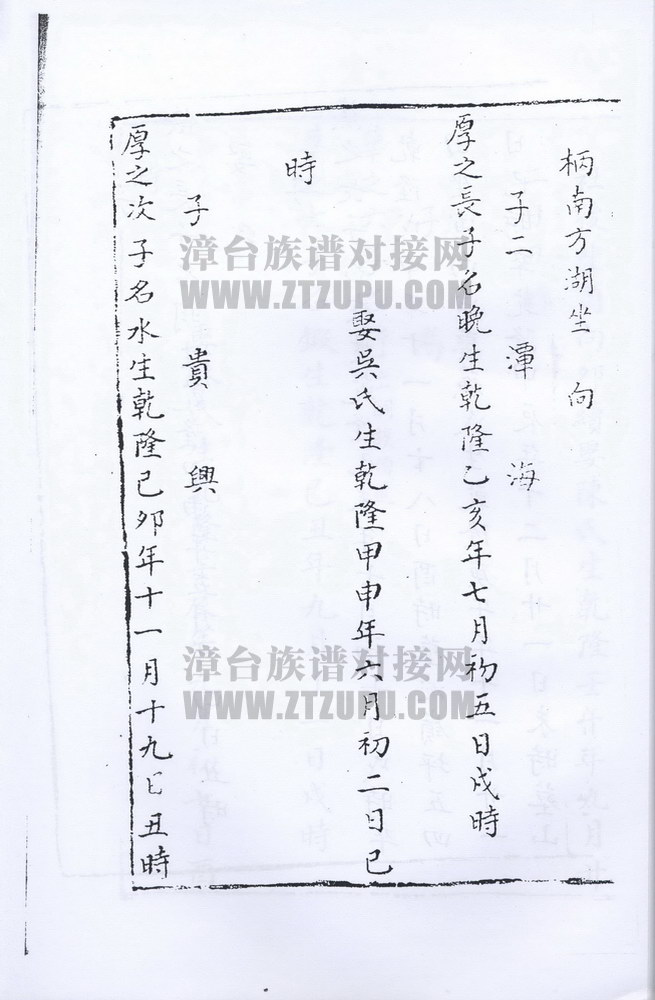 柄南方湖坐　向
子二　潭　海
厚之長子名晚生乾隆乙亥年七月初五日戌時
娶吳氏生乾隆甲申年六月初二日巳
時
子　貴　興
厚之次子名水生乾隆己卯年十一月十九日丑時
漳台族谱对接网
WWW.ZTZUPU.COM
漳台族谱对接网
WWW.ZTZUPU.COM